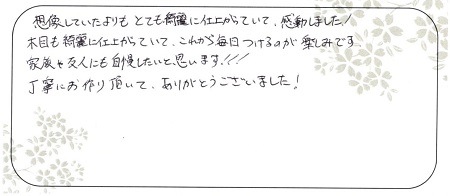 想像していたよりも とても綺麗に仕上がっていて、感動しました!
木目も綺麗に仕上がっていて、これから毎日つけるのが 楽しみです
家族や友人にも自慢したいと思います!!!
丁寧にお作り頂いて、ありがとうございました!